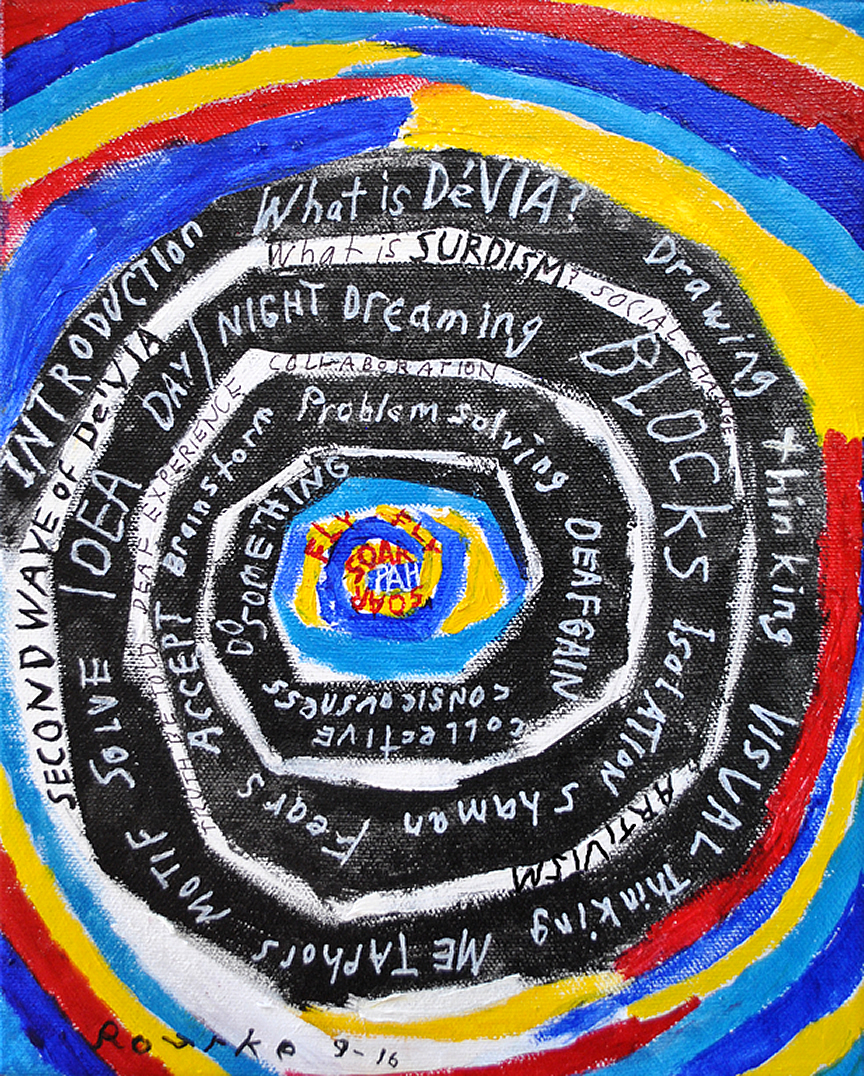 INTRODUCTION
What is DéVIA?
Drawing thinking
VISUAL Thinking
METAPhORS
MOTIF
SOLVE
IDEA
DAY/NIGHT Dreaming
BLOCKS
IsolATION
shaman
Fears
ACCEPT
Brainstorm
Problem solving
DEAFGAIN
COLLECTIVE
CONSICOUSNCESS
DO SOMETHING
SECOND WAVE OF De'VIA
What is SURDISM?
SOCIAL CHANGE
ARTIVISM
TRUTH BE TOLD
DEAF EXPERIENCE
COLLABORATION
FLY FLY
SOAR
PAH
SOAR
Rourke 9-16